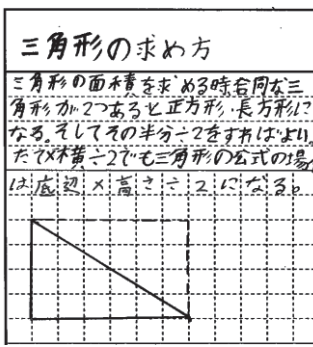 三角形の求め方
三角形の面積を求める時合同な三
角形が2つあると正方形・長方形に
なる。そしてその半分÷2をすればよい。
たて×横÷2でも三角形の公式の場
は底辺×高さ÷2になる。